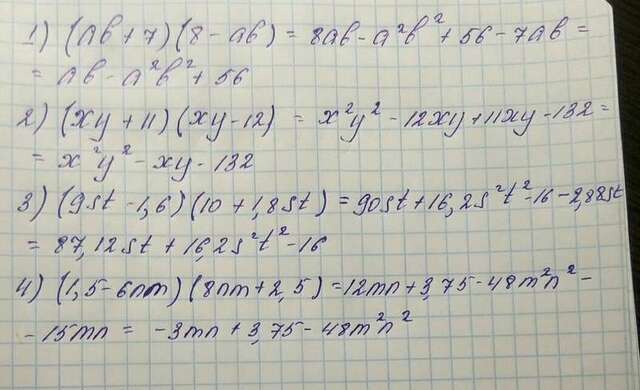 1) (ab + 7) (8 - ab) = 8ab - a²b² + 56 - 7ab =
= ab - a²b² + 56
2) (xy + 11) (xy - 12) = x²y² - 12xy + 11xy - 132 =
= x²y² - xy - 132
3) (9st - 1,6) (10 + 1,8st) = 90st + 16,2s²t² - 16 - 2,88st
= 87,12st + 16,2s²t² - 16
4) (1,5 - 6nm) (8nm + 2,5) = 12mn + 3,75 - 48m²n² -
- 15mn = -3mn + 3,75 - 48m²n²